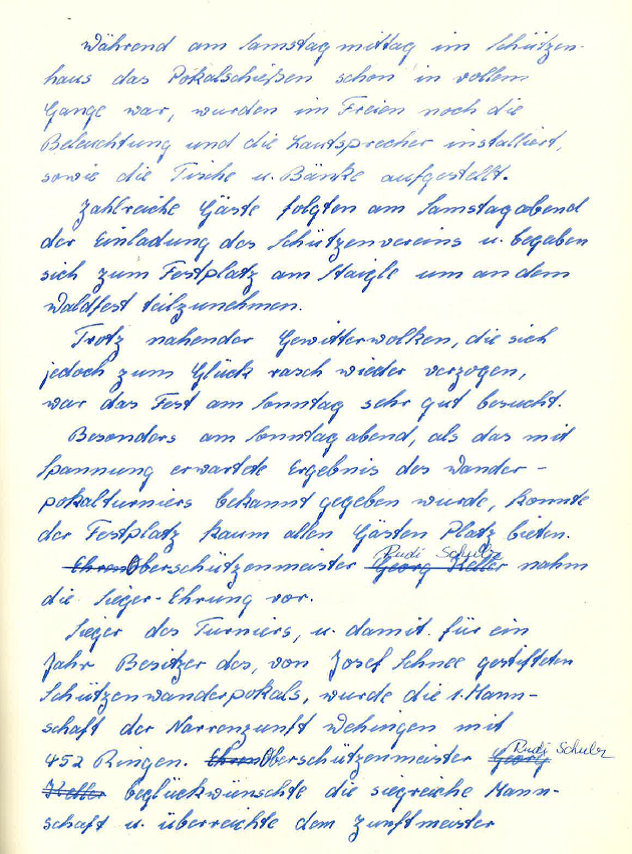 Während am Samstagmittag im Schützen-
haus das Pokalschießen schon in vollem
Gange war, wurden im Freien noch die
Beleuchtung und die Lautsprecher installiert,
sowie die Tische u. Bänke aufgestellt.
Zahlreiche Gäste folgten am Samstagabend
der Einladung des Schützenvereins u. begaben
sich zum Festplatz am Staigle um an dem
Waldfest teilzunehmen.
Trotz nahender Gewitterwolken, die sich
jedoch zum Glück rasch wieder verzogen,
war das Fest am Sonntag sehr gut besucht.
Besonders am Sonntagabend, als das mit
Spannung erwartete Ergebnis des Wander-
pokalturniers bekannt gegeben wurde, konnte
der Festplatz kaum allen Gästen Platz bieten.
Rudi Schulz
EhrenOberschützenmeister Georg Keller nahm
die Sieger-Ehrung vor.
Sieger des Turniers, u. damit für ein
Jahr Besitzer des, von Josef Schnee gestifteten
Schützenwanderpokals, wurde die 1. Mann-
schaft der Narrenzunft Wehingen mit
Rudi Schulz
452 Ringen. EhrenOberschützenmeister Georg
Keller beglückwünschte die siegreiche Mann-
schaft u. überreichte dem Zunftmeister